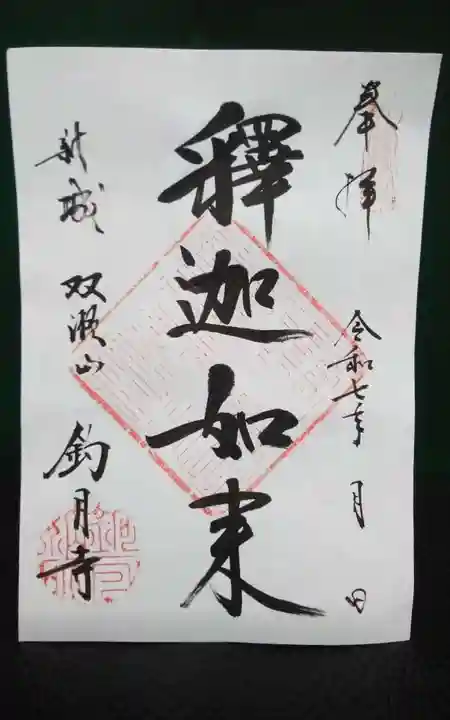 奉拝
令和七年 月 日
釋迦如来
新城 双瀬山 釣月寺